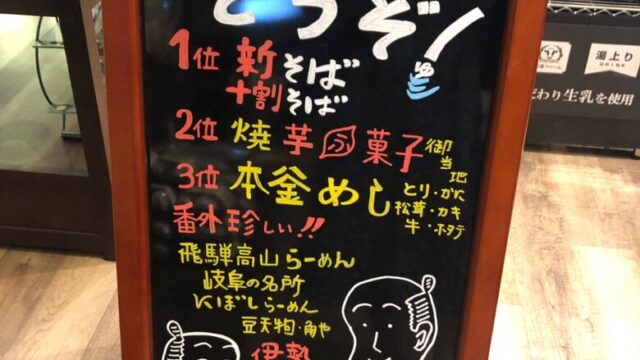 どうぞ!
1位 新そば
十割そば
2位 焼芋 菓子 御当地
3位 本釜めし とり・かに
松茸・カキ
牛・ホタテ
番外珍しい!!
飛騨高山らーめん
岐阜の名所
にぼしらーめん
伊勢
湯上り
DRINK
だわり生乳を使用